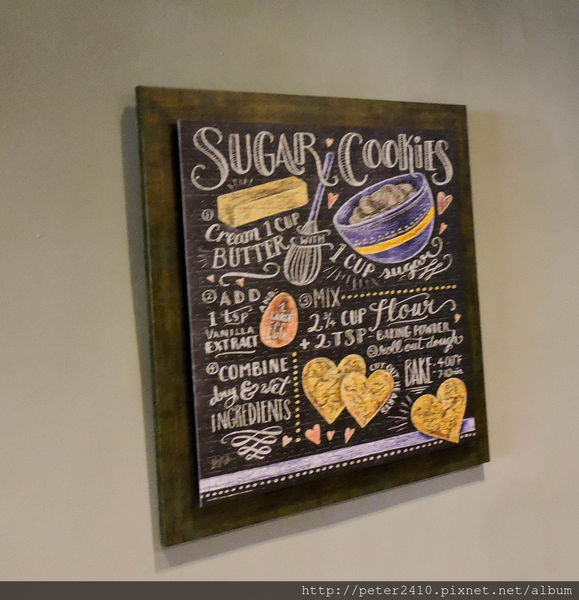 SUGAR COOKIES
① Cream 1 CUP
BUTTER WITH
1 CUP sugar
② ADD
1 tsp
VANILLA
EXTRACT
AND
1
LARGE
EGG
③ MIX
2 ¾ CUP flour
+ 2 TSP BAKING POWDER
④ COMBINE
dry & wet
INGREDIENTS
⑤ roll out dough
CUT OUT HEARTS
BAKE 400°F
7-10 min
http://peter2410.pixnet.net/album